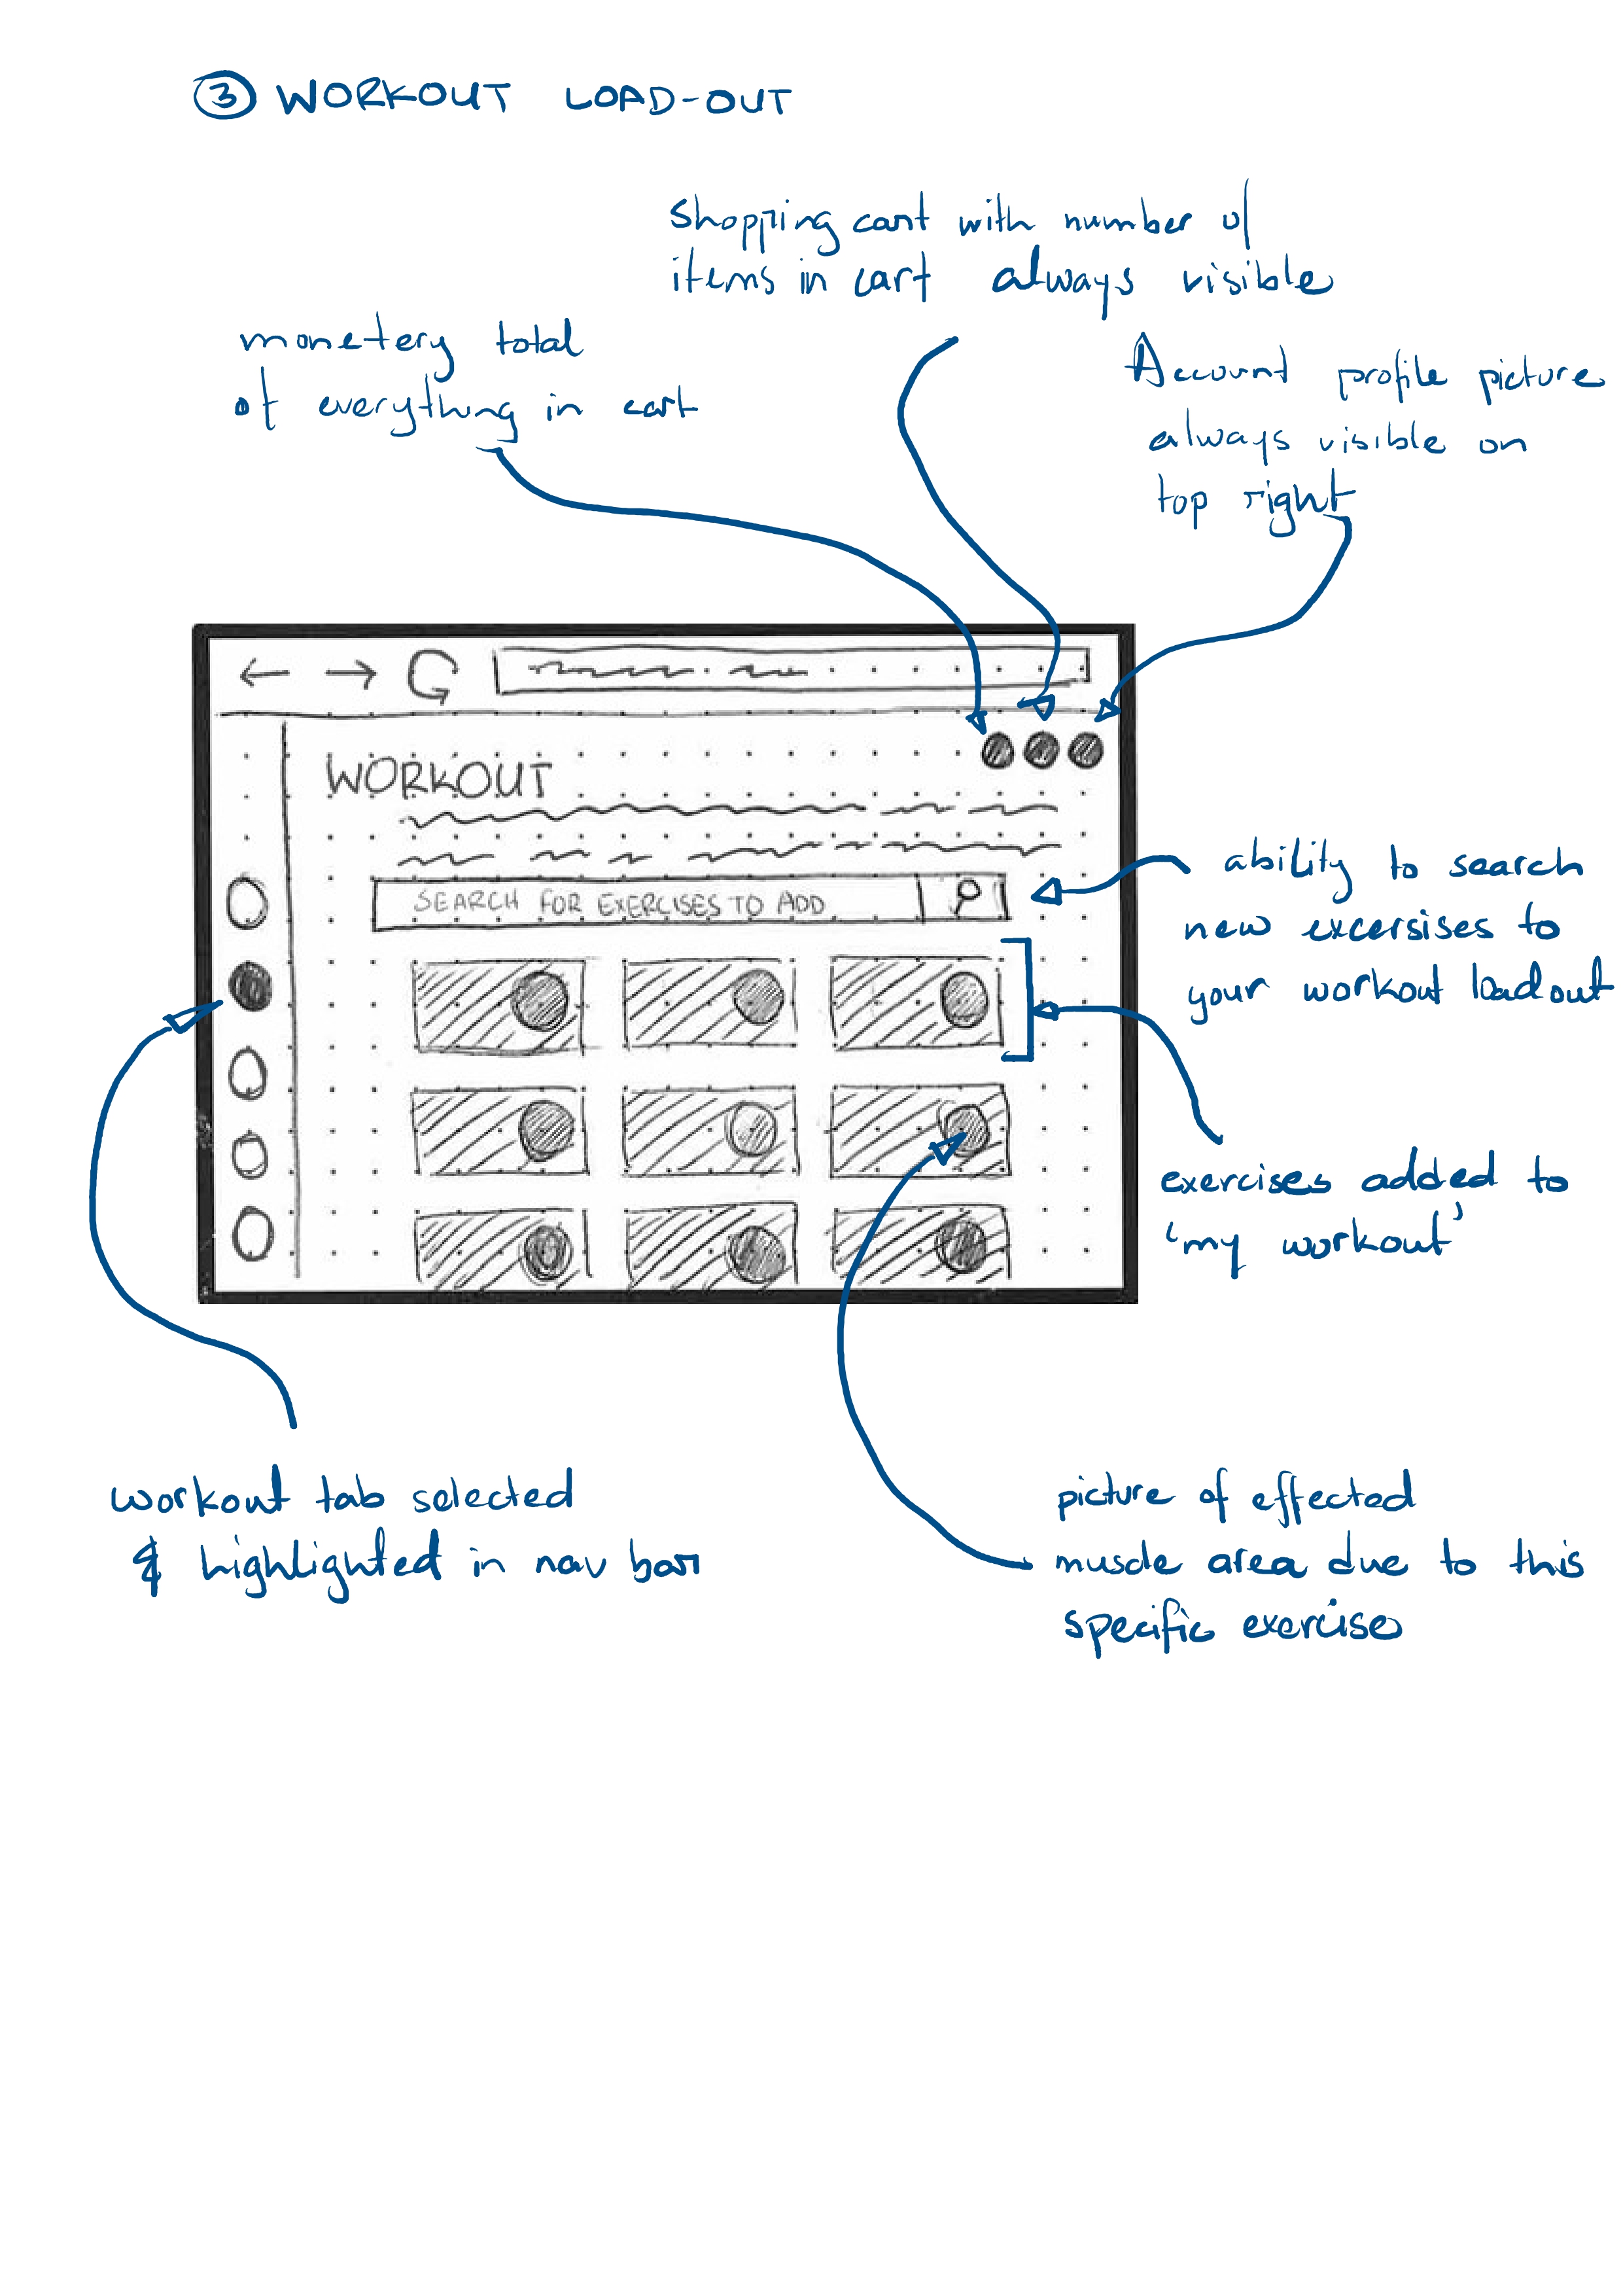 ③ WORKOUT LOAD-OUT
Shopping cart with number of
items in cart always visible
monetery total
of everything in cart
Account profile picture
always visible on
top right
WORKOUT
SEARCH FOR EXERCISES TO ADD
ability to search
new excersises to
your workout loadout
exercises added to
'my workout'
workout tab selected
& highlighted in nav bar
picture of effected
muscle area due to this
specific exercise